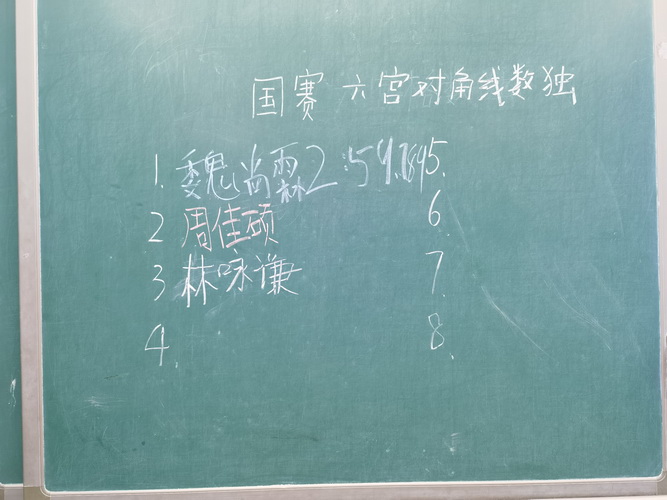 国赛 六宫对角线数独
1. 魏尚霖 2:59.78 5.
2 周佳硕 6.
3 林咏谦 7.
4. 8.